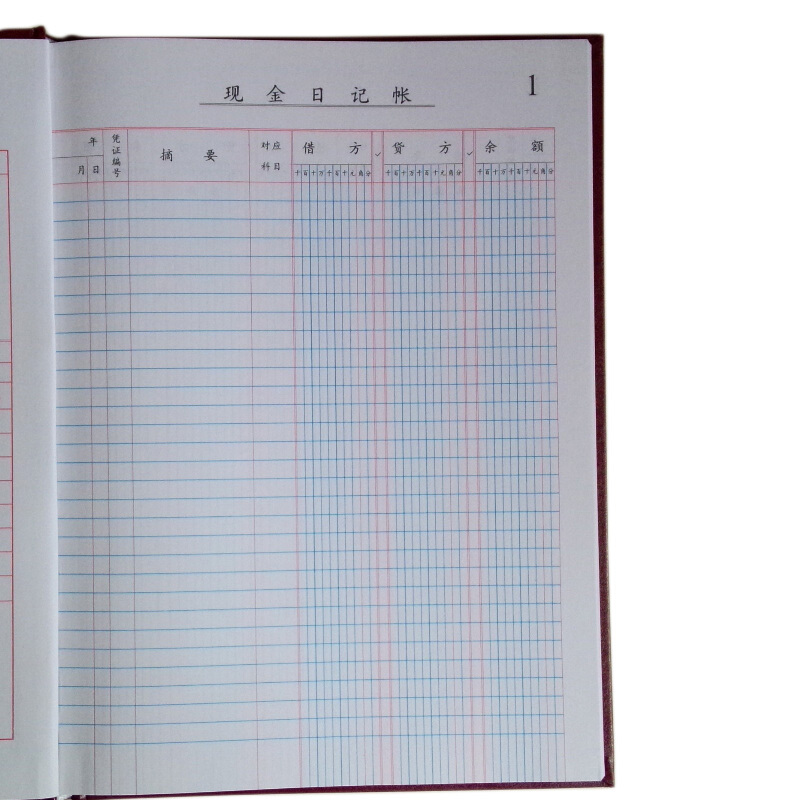 现金日记帐 1
年 凭证编号 摘要 对应科目 借方 ✓ 贷方 ✓ 余额
月 日 千百十万千百十元角分 千百十万千百十元角分 千百十万千百十元角分